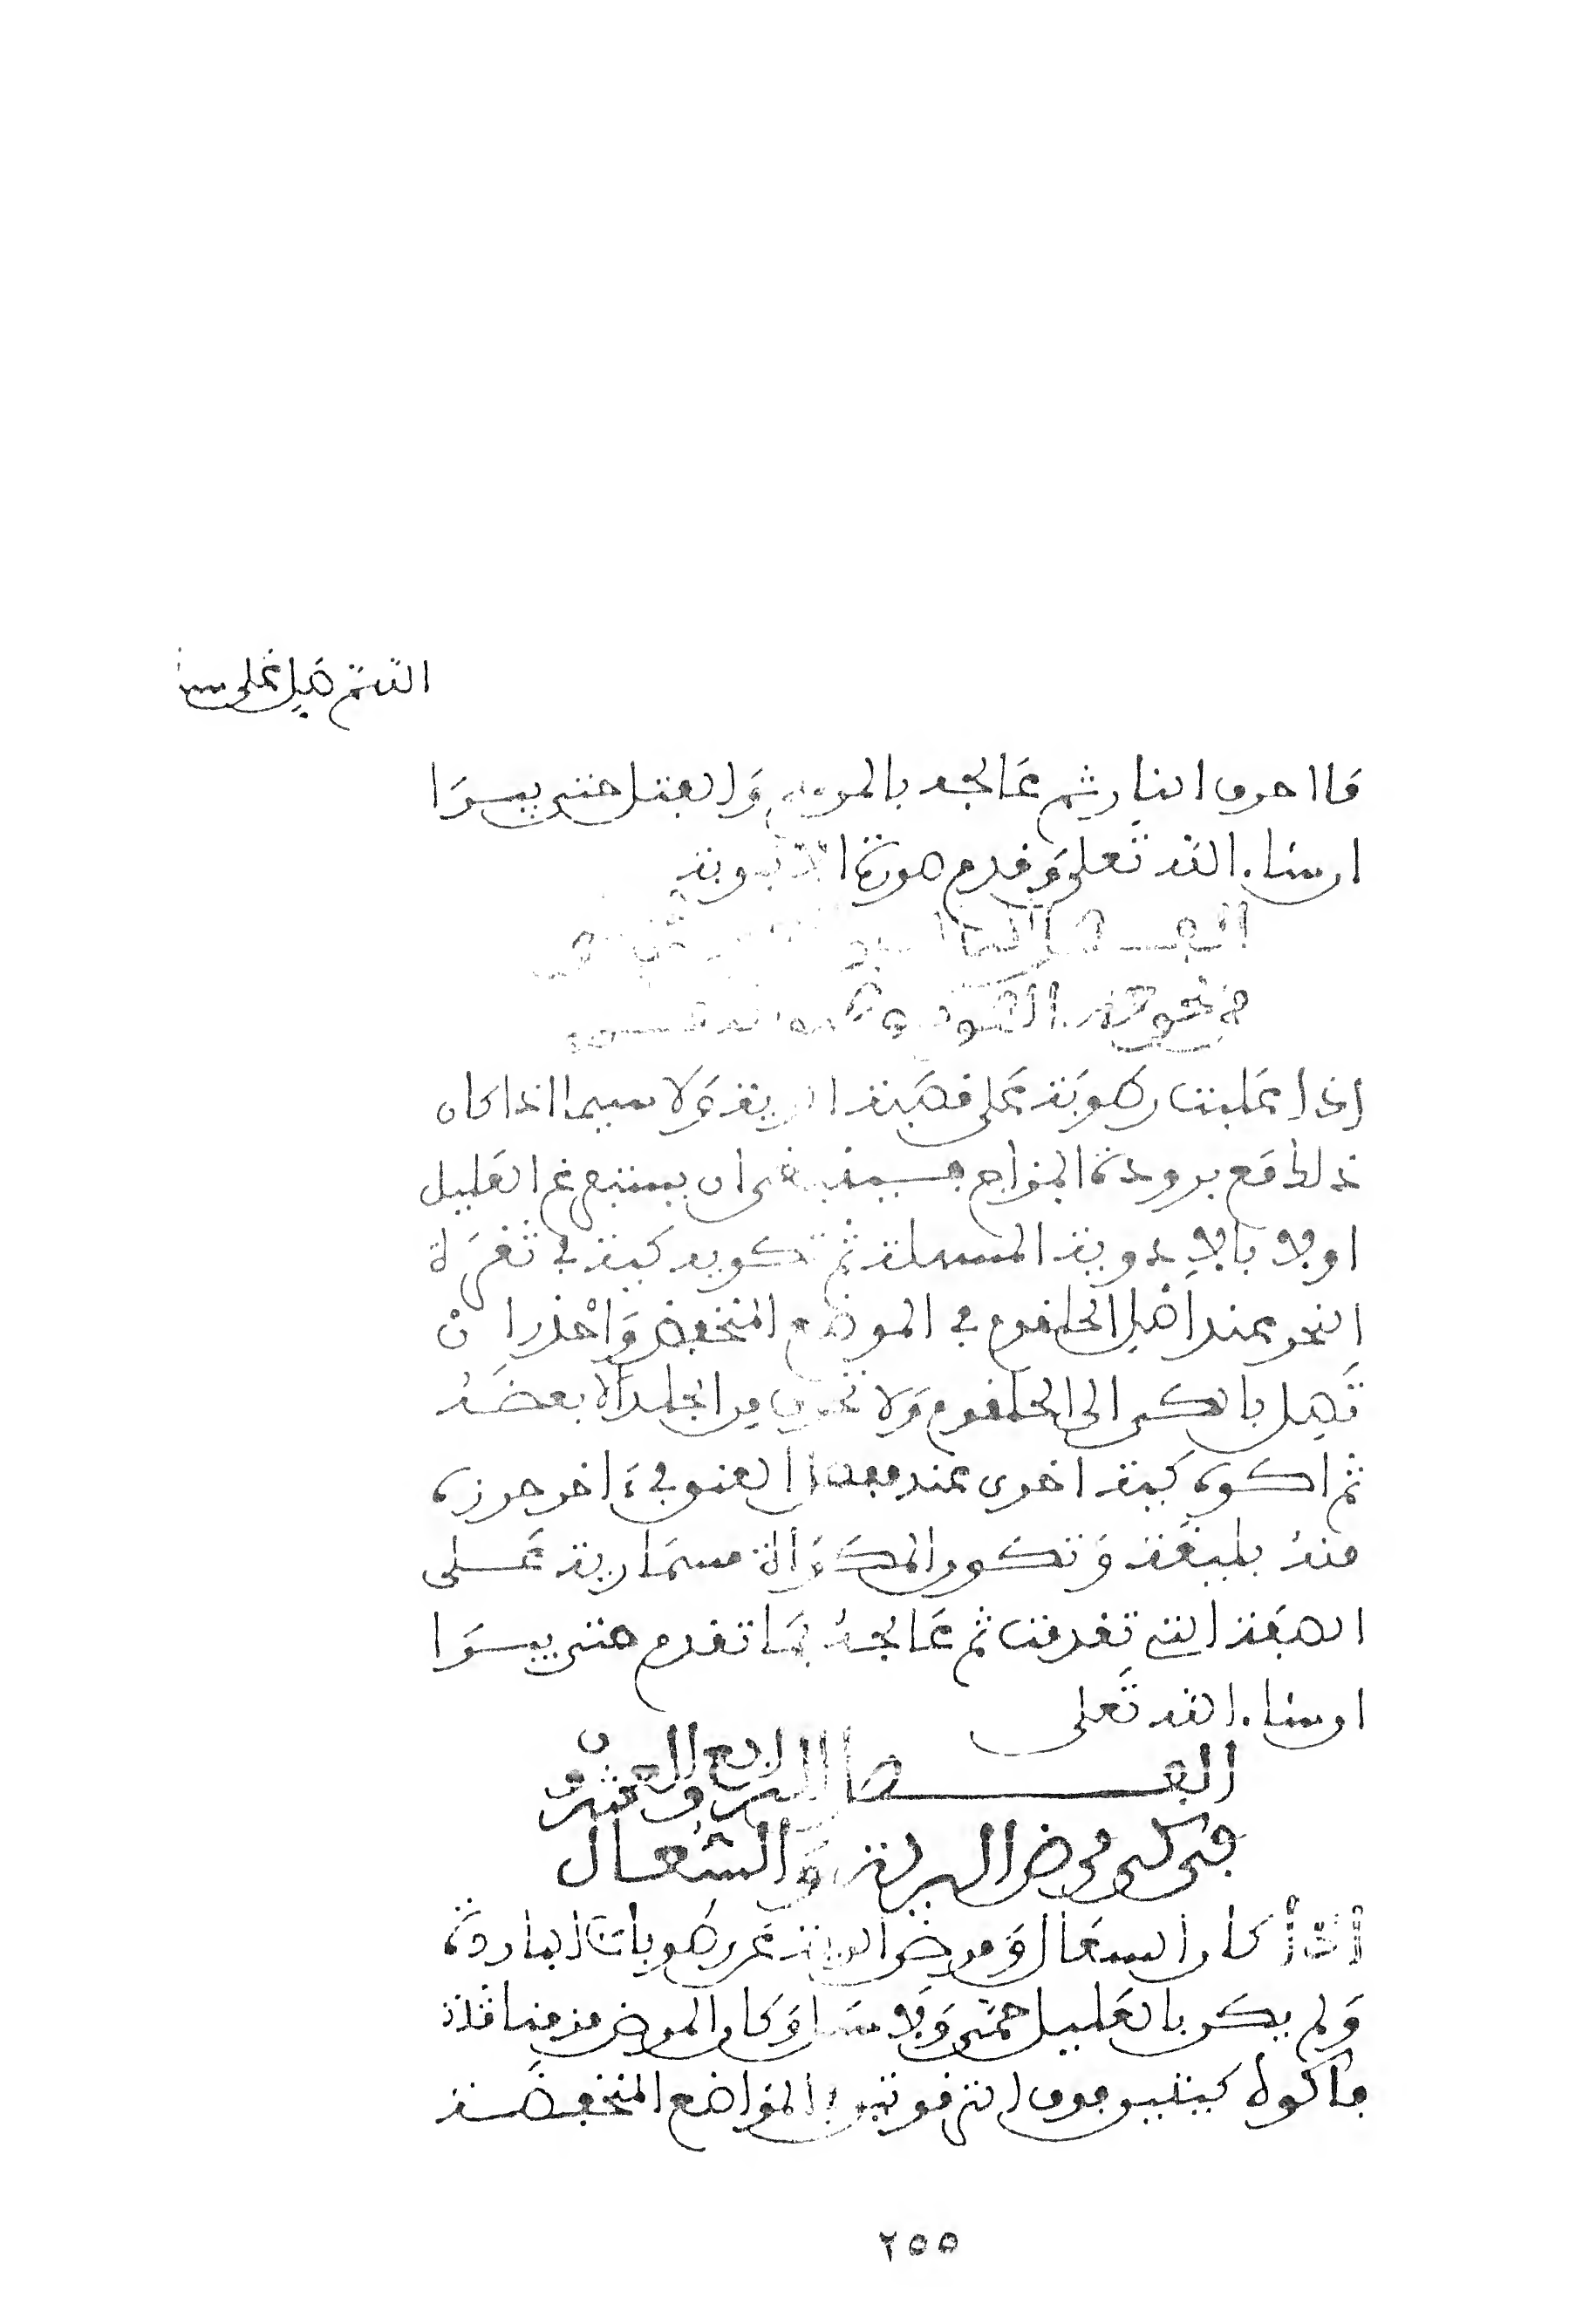 اللهم صل على سيدنا
ما احرق النار ثم عالجه بالمرهم والفتل حتى يبرا
ان شاء الله تعلى وقدم صورة الانبوبة
الفصل الثالث والعشرون
في بحوحة الصوت وضيق النفس
إذا غلبت رطوبة على قصبة الرية ولا سيما اذا كان
ذلك مع برودة المزاج فينبغي ان يستفرغ العليل
اولا بالادوية المسهلة ثم تكويه كية في ثغرة
النحر عند اصل الحلقوم في الموضع المنخفض واحذر ان
تصل بالكي الى الحلقوم ولا تحرق من الجلد الا بعضه
ثم اكوه كية اخرى عند مفصل العنق في ءاخر خرزة
منه بليغة وتكون المكواة مسمارية على
الصفة التي تقدمت ثم عالجه بما تقدم حتى يبرا
ان شاء الله تعلى
الفصل الرابع والعشرون
في كي مرض الرية والسعال
إذا كان السعال ومرض الرية عن رطوبات باردة
ولم يكن بالعليل حمى ولا سل وكان المرض مزمنا
فاكوه كيتين فوق الترقوتين في المواضع المنخفضة
٢٥٥